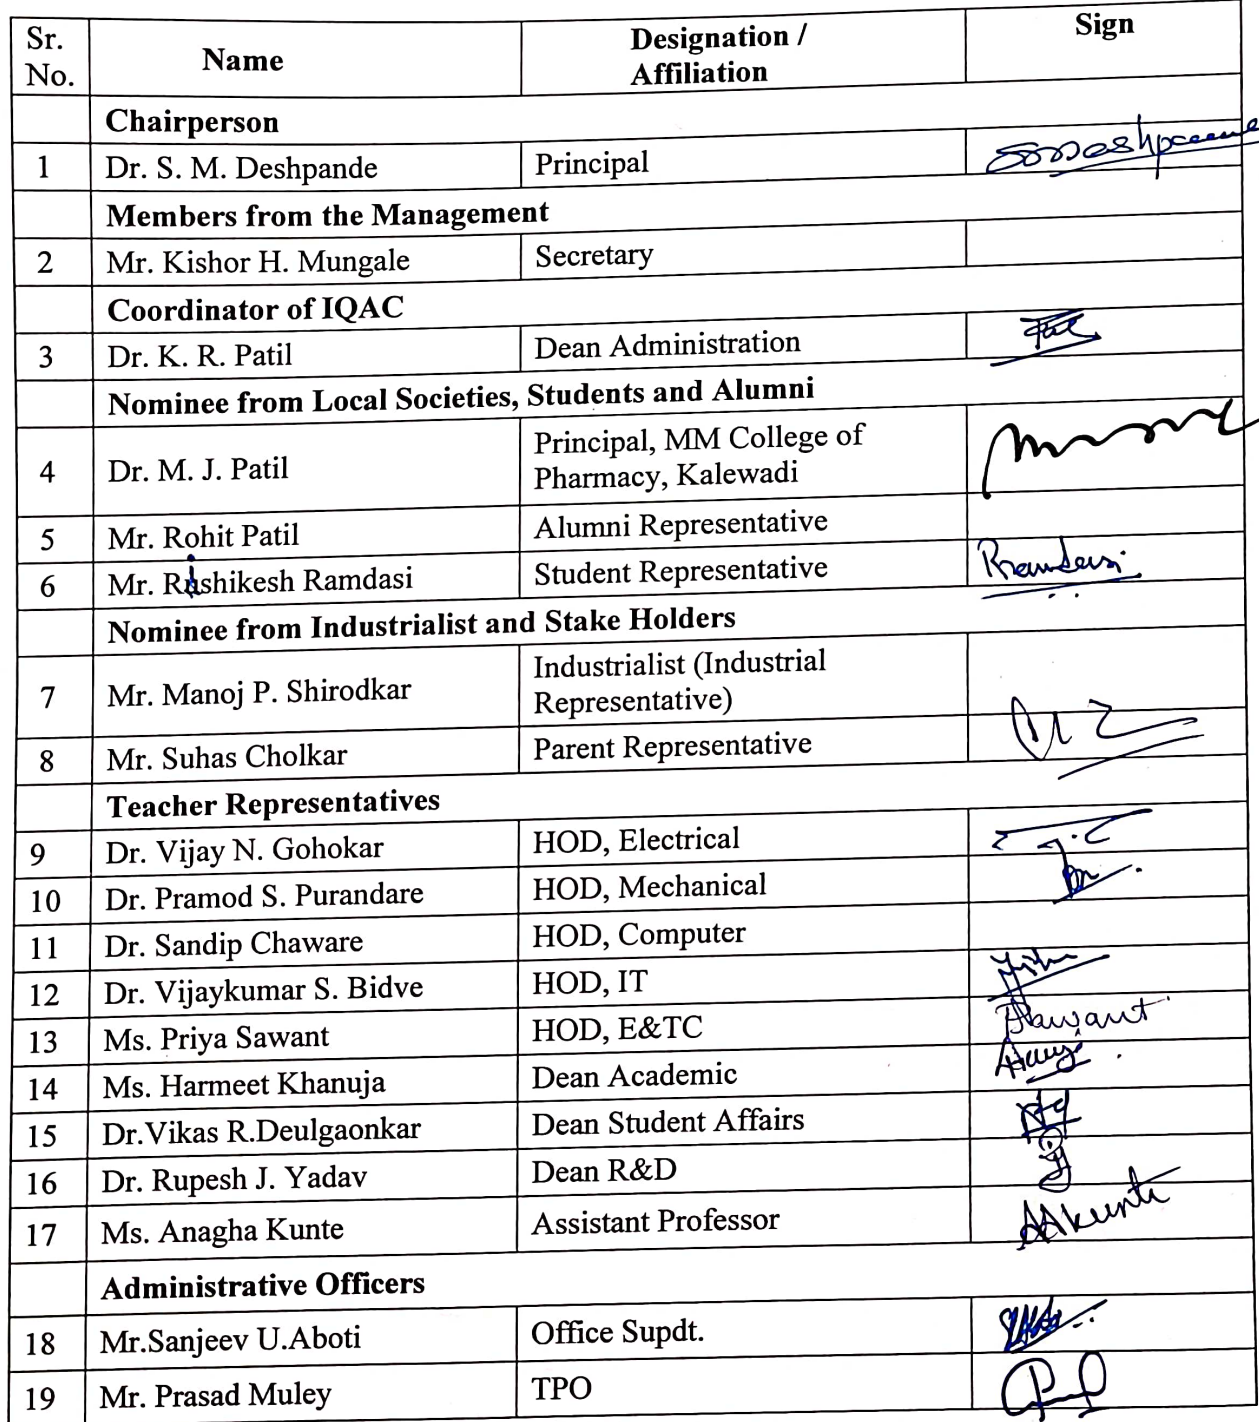 Sr. No. Name Designation / Affiliation Sign
Chairperson
1 Dr. S. M. Deshpande Principal
Members from the Management
2 Mr. Kishor H. Mungale Secretary
Coordinator of IQAC
3 Dr. K. R. Patil Dean Administration
Nominee from Local Societies, Students and Alumni
4 Dr. M. J. Patil Principal, MM College of
Pharmacy, Kalewadi
5 Mr. Rohit Patil Alumni Representative
6 Mr. Rishikesh Ramdasi Student Representative Ramdasi
Nominee from Industrialist and Stake Holders
7 Mr. Manoj P. Shirodkar Industrialist (Industrial
Representative)
8 Mr. Suhas Cholkar Parent Representative
Teacher Representatives
9 Dr. Vijay N. Gohokar HOD, Electrical
10 Dr. Pramod S. Purandare HOD, Mechanical
11 Dr. Sandip Chaware HOD, Computer
12 Dr. Vijaykumar S. Bidve HOD, IT
13 Ms. Priya Sawant HOD, E&TC PSawant
14 Ms. Harmeet Khanuja Dean Academic
15 Dr.Vikas R.Deulgaonkar Dean Student Affairs
16 Dr. Rupesh J. Yadav Dean R&D
17 Ms. Anagha Kunte Assistant Professor AAKunte
Administrative Officers
18 Mr.Sanjeev U.Aboti Office Supdt.
19 Mr. Prasad Muley TPO